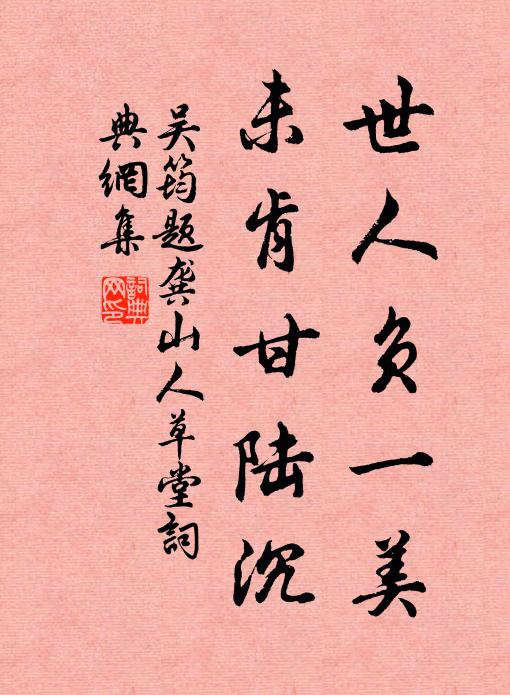 世人负一美
未肯甘陆沉
吴筠题龚山人草堂詞
典網集
詞典网印